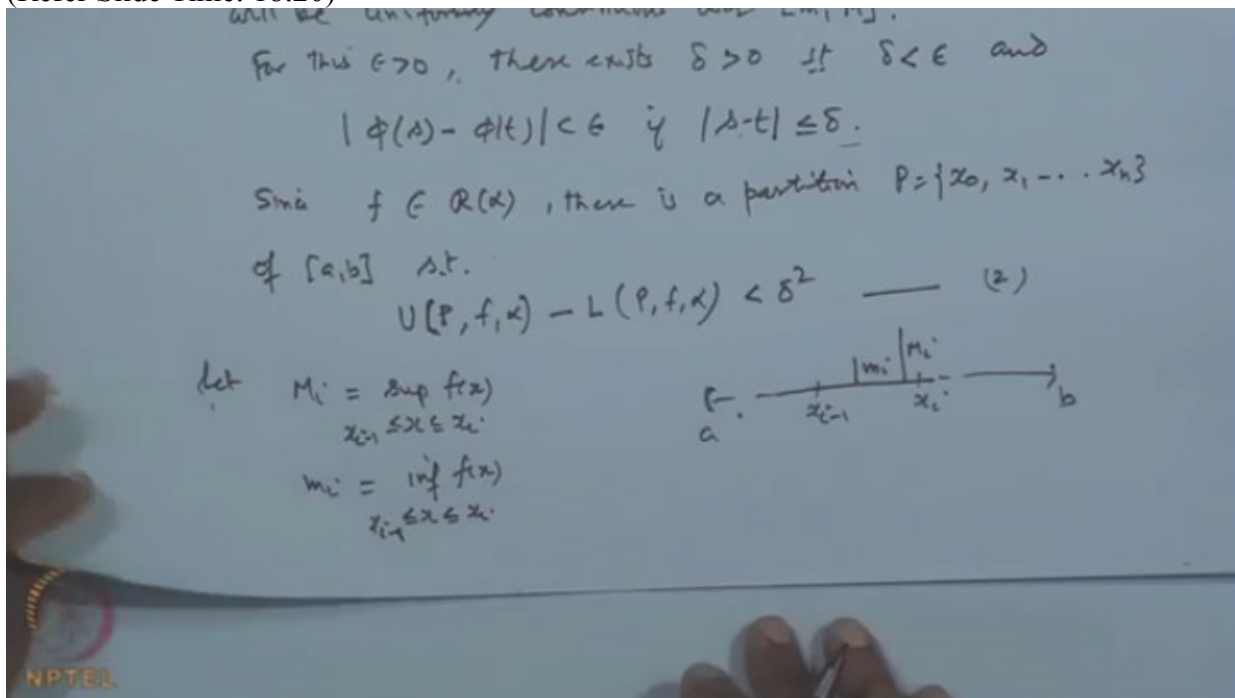 will be uniformly continuous over [m, M].
For this ϵ>0, there exists δ>0 st δ<ϵ and
|ϕ(s)-ϕ(t)|<ϵ if |s-t|≤δ.
Since f ∈ R(α), there is a partition P={x₀, x₁ -... xₙ}
of [a,b] s.t.
U(P, f, α) - L(P, f, α) < δ² —— (2)
Let Mᵢ = sup f(x)
xᵢ₋₁≤x≤xᵢ
mᵢ = inf f(x)
xᵢ₋₁≤x≤xᵢ
mᵢ Mᵢ
a xᵢ₋₁ xᵢ b
NPTEL